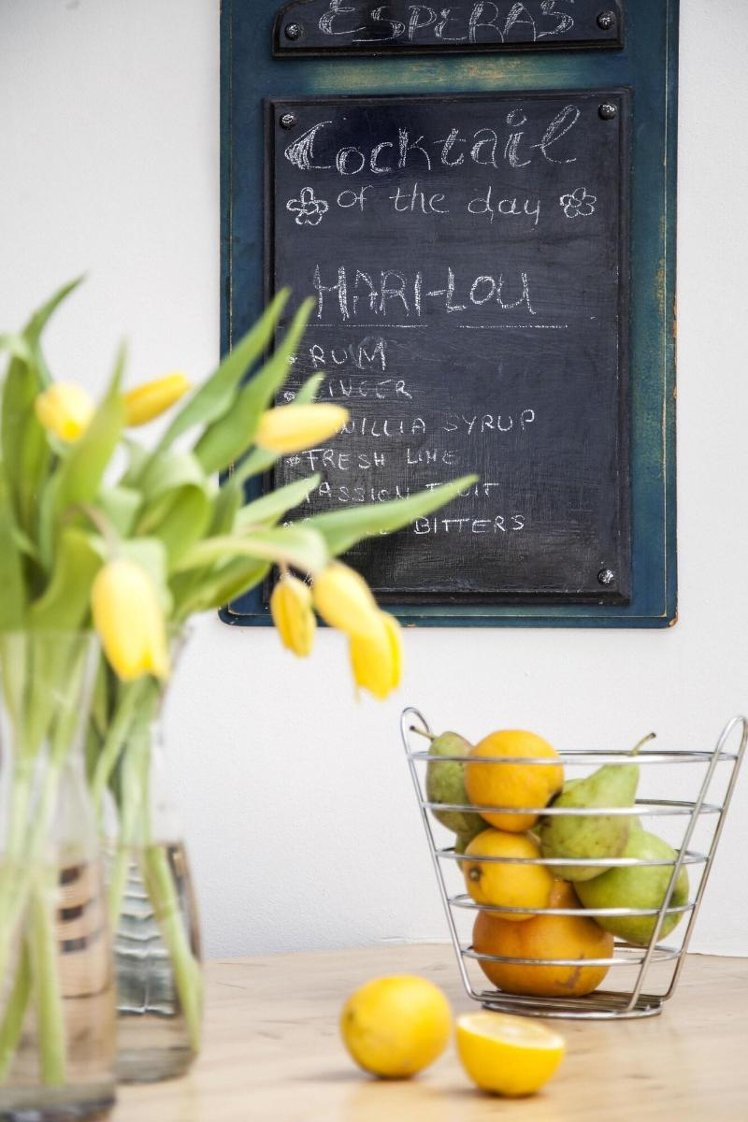 ESPERAS
Cocktail
of the day
MARI-LOU
RUM
GINGER
VANILLIA SYRUP
FRESH LIME
PASSION FRUIT
BITTERS